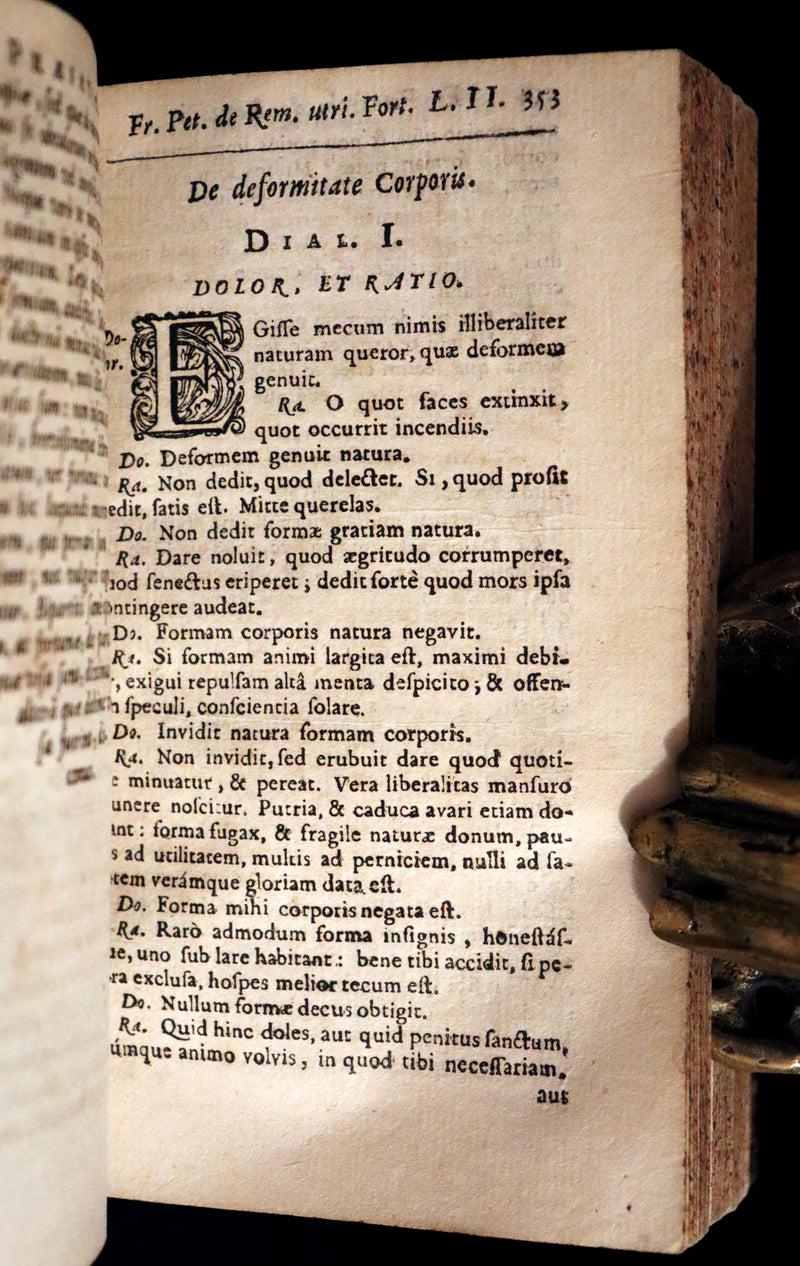 Fr. Pet. de Rem. utri. Fort. L. II. 353
De deformitate Corporis.
DIAL. I.
DOLOR, ET RATIO.
Do-
EGiſſe mecum nimis illiberaliter
naturam queror, quæ deformem
genuit.
Ra. O quot faces extinxit,
quot occurrit incendiis.
Do. Deformem genuit natura.
Ra. Non dedit, quod delectet. Si, quod proſit
edit, ſatis eſt. Mitte querelas.
Do. Non dedit formæ gratiam natura.
Ra. Dare noluit, quod ægritudo corrumperet,
ſenectus eriperet; dedit fortè quod mors ipſa
ontingere audeat.
Do. Formam corporis natura negavit.
Ra. Si formam animi largita eſt, maximi debi-
, exigui repulſam altâ menta deſpicito; & offen-
ſpeculi, conſcientia ſolare.
Do. Invidit natura formam corporis.
Ra. Non invidit, ſed erubuit dare quod quoti-
minuatur, & pereat. Vera liberalitas manſuro
unere noſcitur. Putria, & caduca avari etiam do-
int: forma fugax, & fragile naturæ donum, pau-
s ad utilitatem, multis ad perniciem, nulli ad ſa-
tem verámque gloriam data eſt.
Do. Forma mihi corporis negata eſt.
Ra. Rarò admodum forma inſignis, honeſtáſ-
ue, uno ſub lare habitant: bene tibi accidit, ſi pe-
ra excluſa, hoſpes melior tecum eſt.
Do. Nullum formæ decus obtigit.
Ra. Quid hinc doles, aut quid penitus ſanctum,
umque animo volvis, in quod tibi neceſſariam,
aut